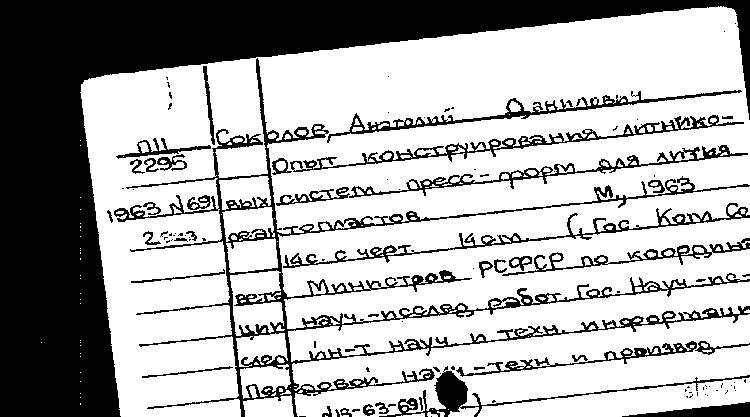 П11
2295
1963 №691
2 экз.
Соколов, Анатолий Данилович
Опыт конструирования литнико-
вых систем пресс-форм для литья
реактопластов. М., 1963
14с. с черт. 14см. (Гос. Ком. Со
вета Министров РСФСР по координа
ции науч.-исслед. работ. Гос. Науч.-ис-
след. ин-т науч. и техн. информации
Передовой науч.-техн. и производ.
№13-63-691/ ).